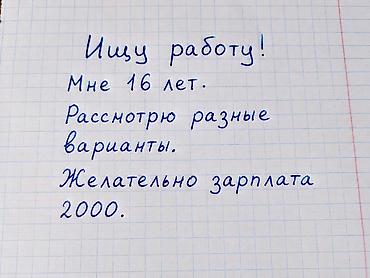 Ищу работу!
Мне 16 лет.
Рассмотрю разные
варианты.
Желательно зарплата
2000.